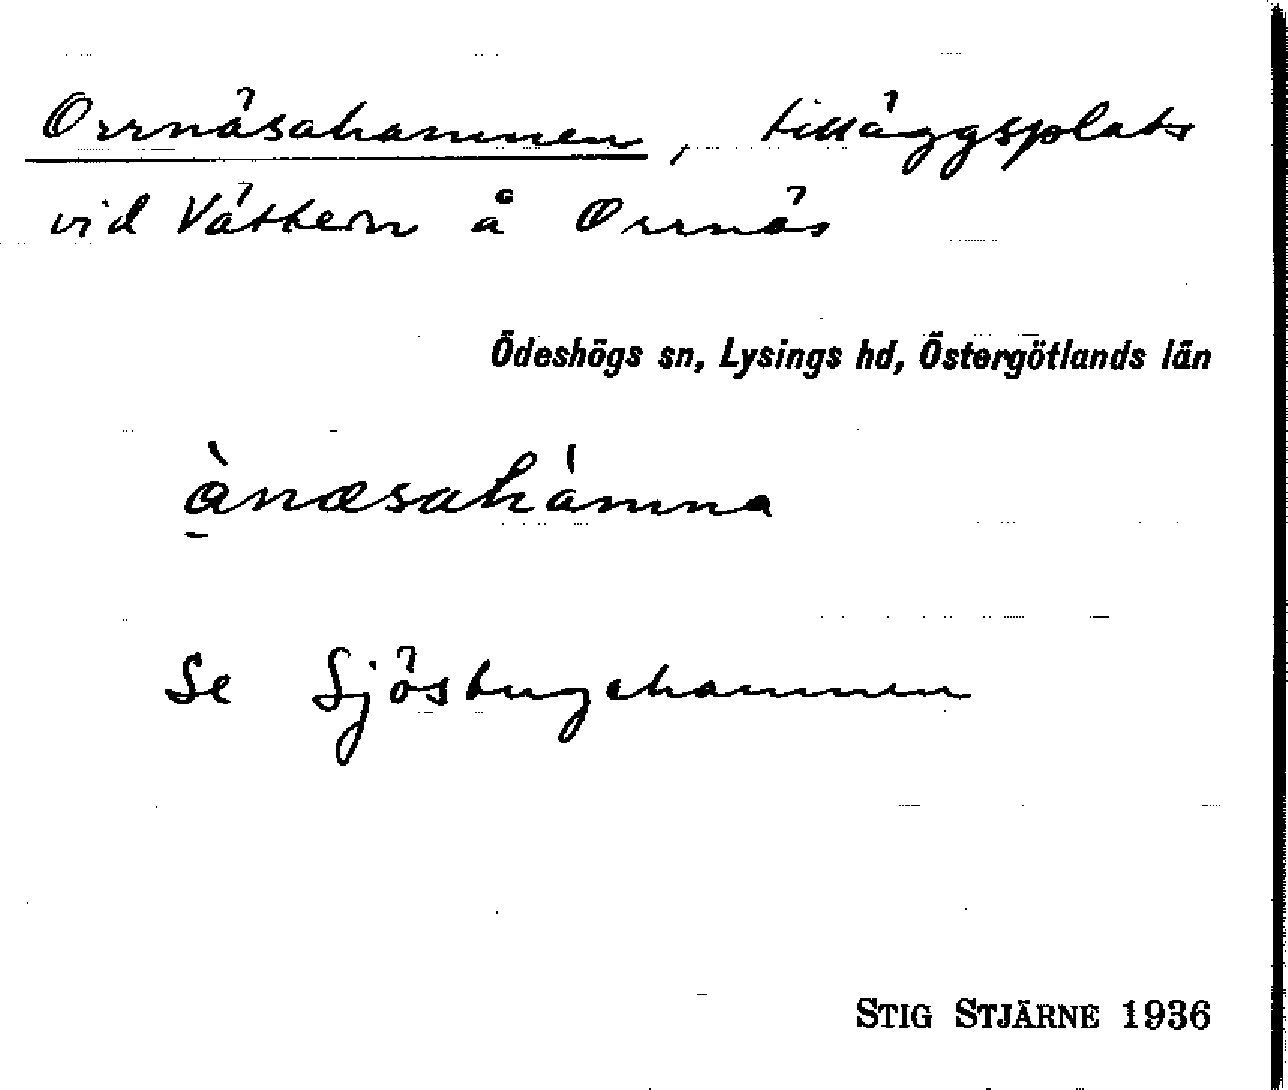 Orrnäsahamnen, tilläggsplats
vid Vättern å Orrnäs
Ödeshögs sn, Lysings hd, Östergötlands län
à̱næsahámna
Se Sjöstugehamnen
STIG STJÄRNE 1936